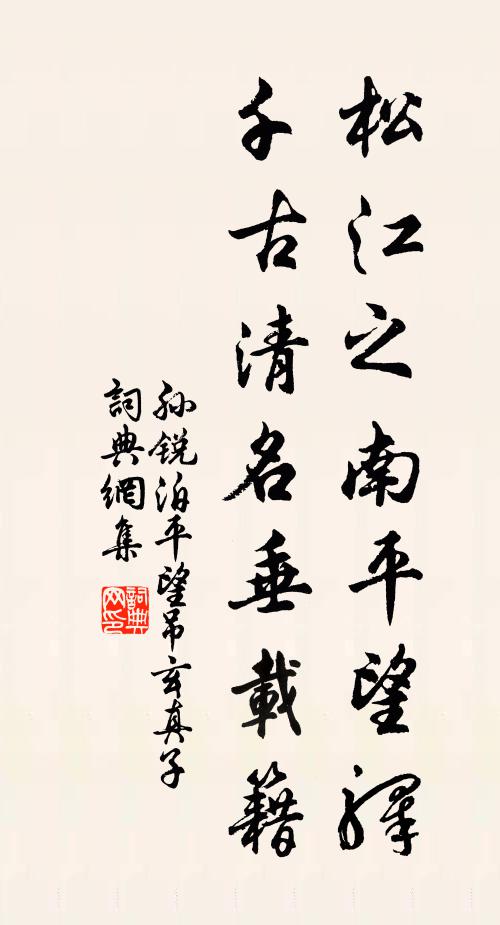 松江之南平望驛
千古清名垂載籍
孙銳泊平望吊玄真子
詞典網集
詞典网印